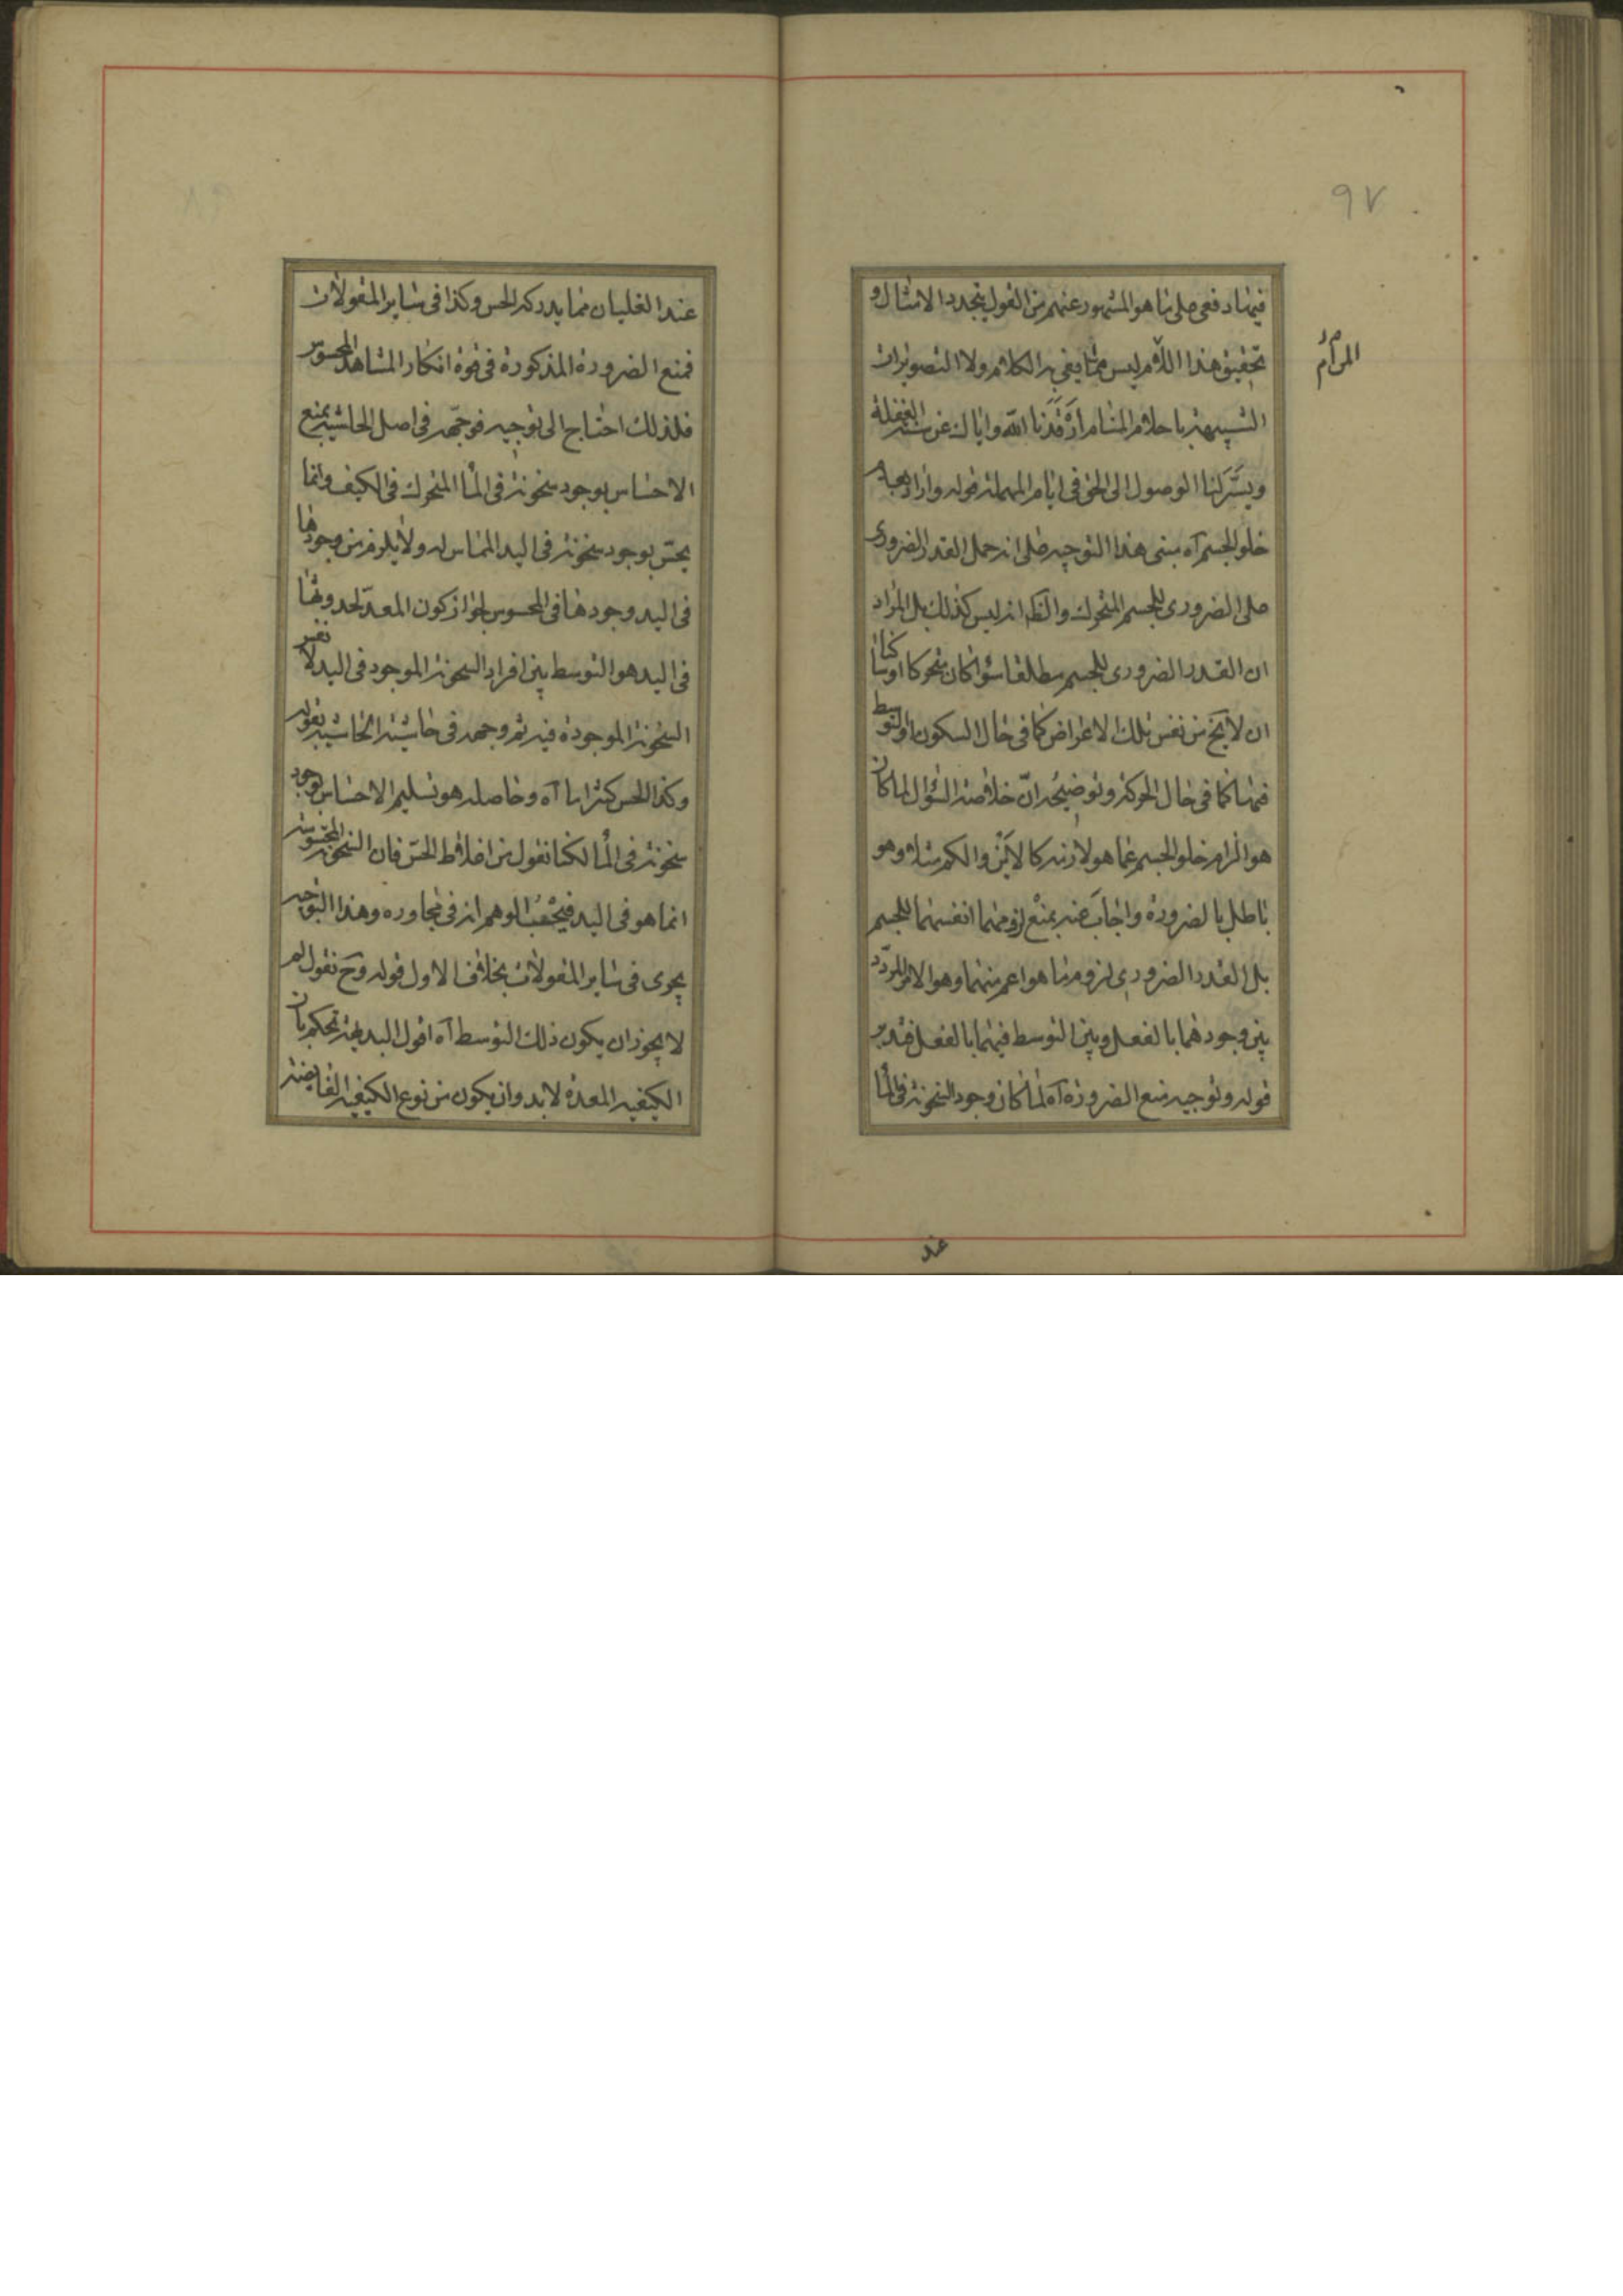 ٩٧
فيهما دفعى على ما هو المشهور عنهم من القول بتجدد الامثال و
تحقيق هذا اللام ليس مما يفى به الكلام ولا التصويرات
المرام
الشبيهة باحلام المنام ارقدنا الله واياك عن سنة الغفلة
ويسر لنا الوصول الى الحق فى ايام المهملة قوله واراد بعدم
خلو الجسم آه مبنى هذا التوجيه على انه حمل القدر الضرورى
على الضرورى للجسم المتحرك والظ انه ليس كذلك بل المراد
ان القدر الضرورى للجسم مطلقا سواء كان متحركا او ساكنا
ان لا يخ من نفس تلك الاعراض كما فى حال السكون او التوسط
فيها كما فى حال الحركة وتوضيحه انّ خلاصة السؤال لما كان
هو الزام خلو الجسم عما هو لازمه كالاين والكم مثلا وهو
باطل بالضرورة واجاب عنه بمنع لزومهما انفسهما للجسم
بل القدر الضرورى لزوم ما هو اعم منهما وهو الامر المردّد
بين وجودهما بالفعل وبين التوسط فيهما بالفعل فتدبر
قوله وتوجيه منع الضرورة آه لما كان وجود السخونة فى الماء
عند
عند الغليان مما يدركه الحس وكذا فى ساير المقولات
فمنع الضرورة المذكورة فى قوة انكار المشاهد المحسوس
فلذلك احتاج الى توجيه فوجّهه فى اصل الحاشية بمنع
الاحساس بوجود سخونة فى الماء المتحرك فى الكيف وانما
يحسّ بوجود سخونة فى اليد المماس له ولا يلزم من وجودها
فى اليد وجودها فى المحسوس لجواز كون المعدّ لحدوثها
فى اليد هو التوسط بين افراد السخونة الموجود فى اليد لا نفس
السخونة الموجودة فيه ثم وجهه فى حاشية الحاشية بقوله
وكذا الحس كثيرا ما آه وحاصله هو تسليم الاحساس بوجود
سخونة فى الماء لكنا نقول من اغلاط الحسّ فان السخونة المحسوسة
انما هو فى اليد فيحسب الوهم انه فى مجاوره وهذا التوجيه
يجرى فى ساير المقولات بخلاف الاول قوله وح نقول لم
لا يجوز ان يكون ذلك التوسط آه اقول البديهة تحكم بان
الكيفية المعدة لا بد وان يكون من نوع الكيفية الفايضة